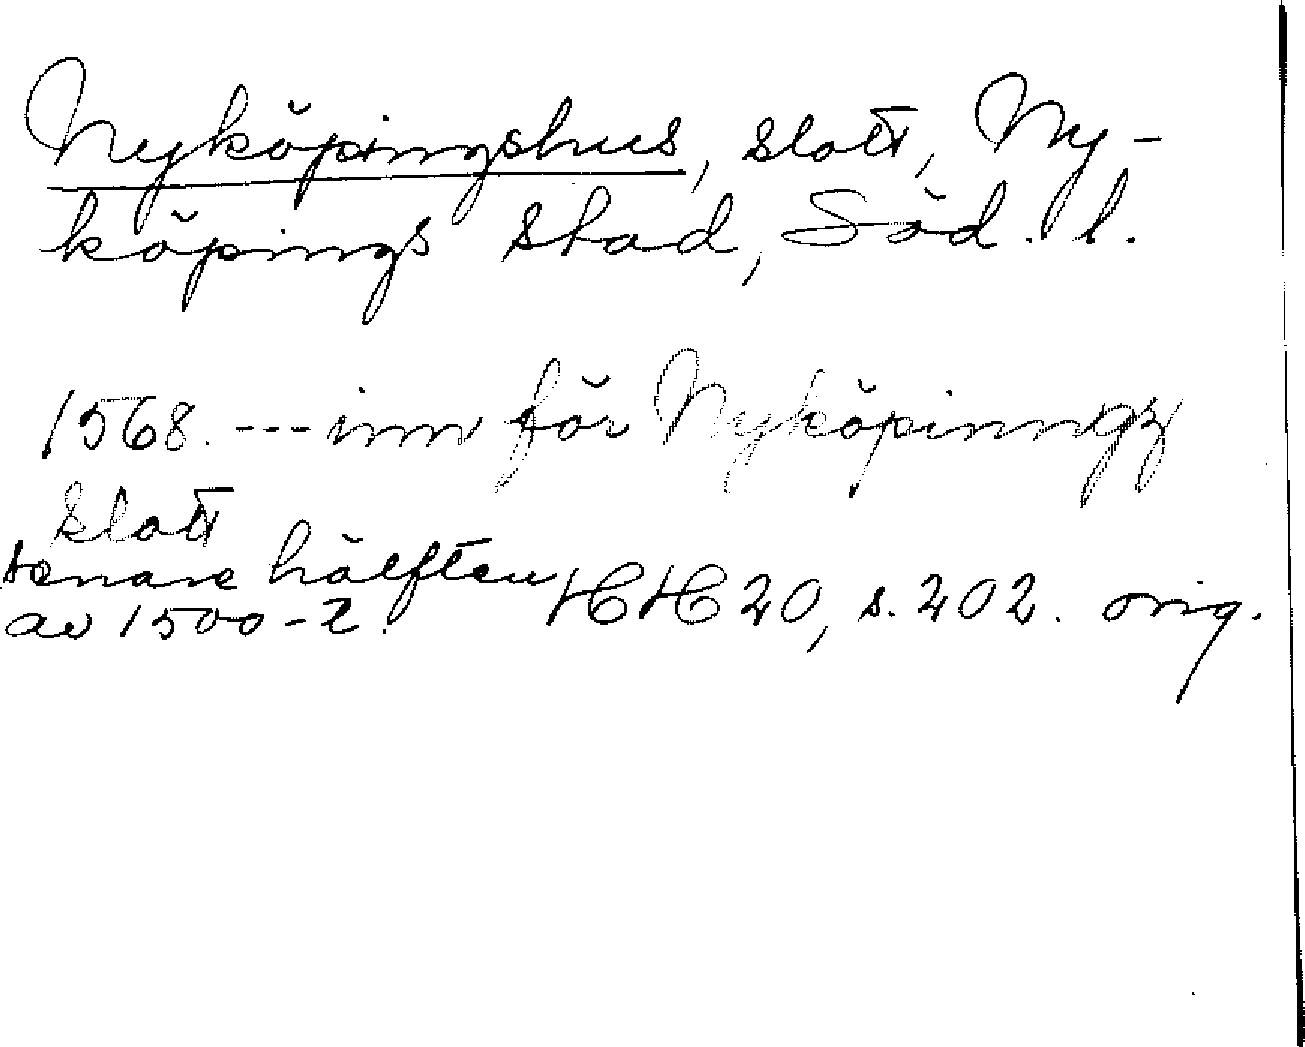 Nyköpingshus, slott, Ny-
köpings stad, Söd. l.
1568. --- inn för Nyköpinngz
slott
senare hälften
av 1500-t. HH 20, s. 202. orig.